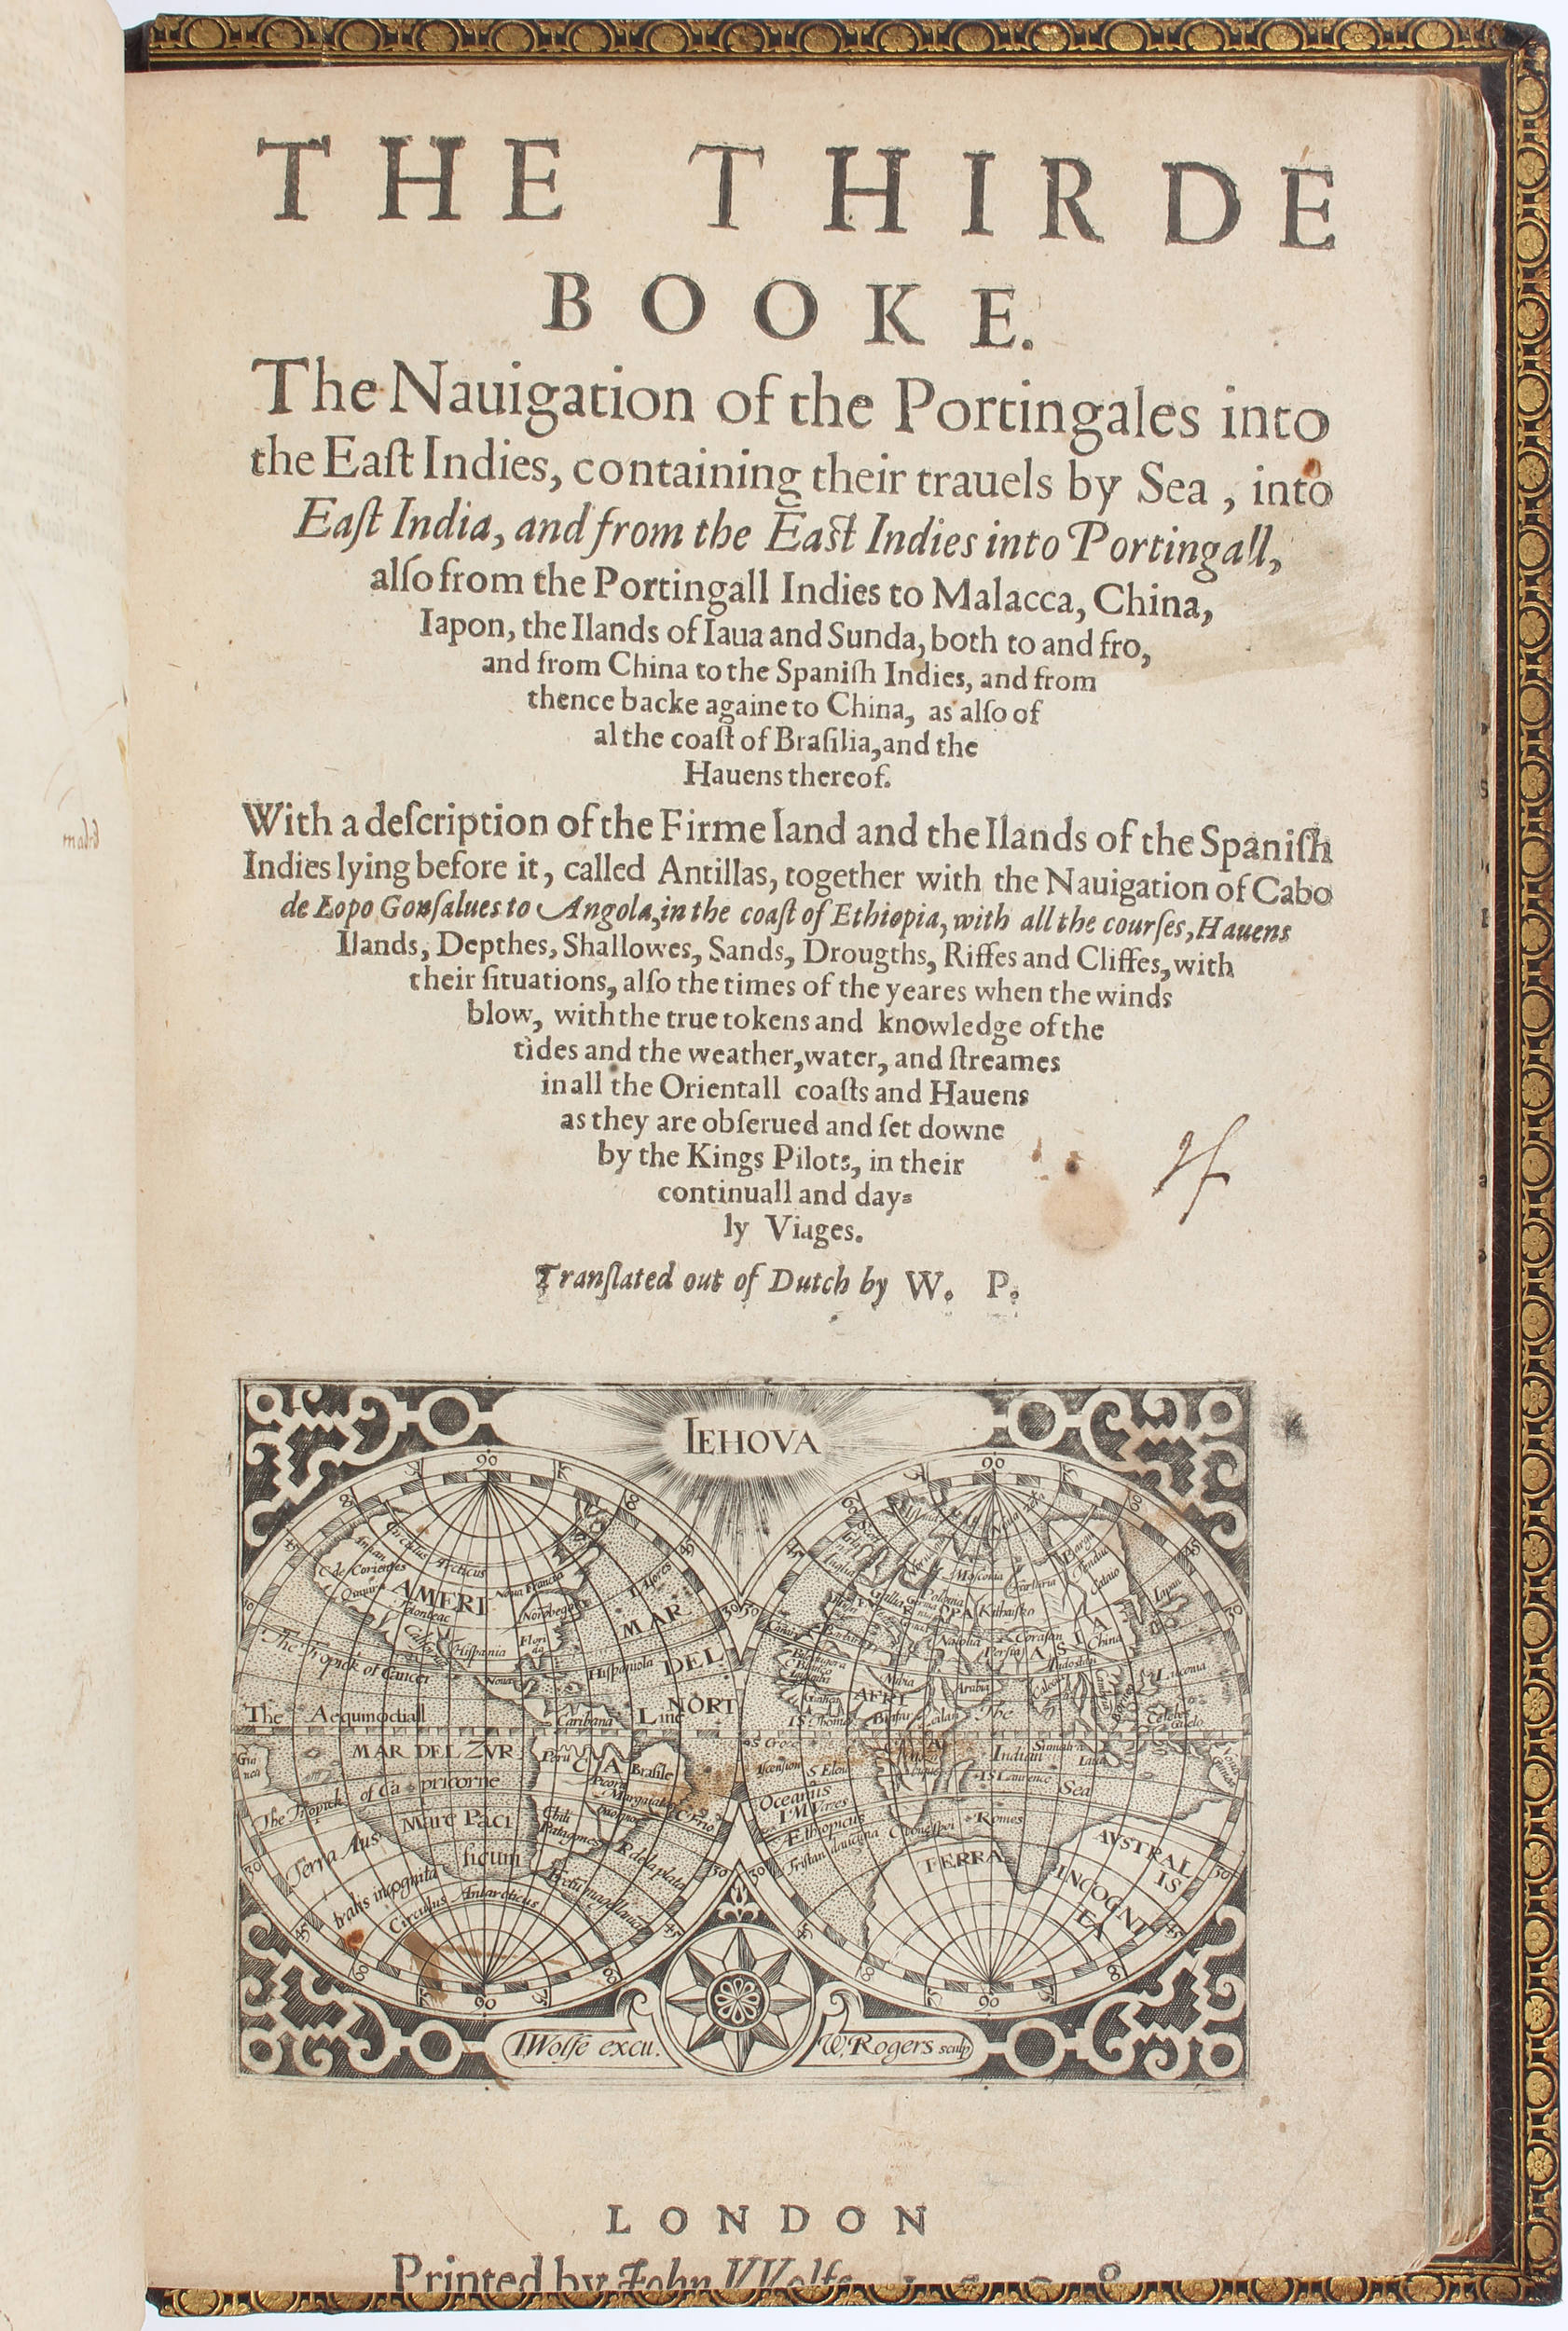 THE THIRDE
BOOKE.
The Nauigation of the Portingales into
the Eaſt Indies, containing their trauels by Sea, into
Eaſt India, and from the Eaſt Indies into Portingall,
alſo from the Portingall Indies to Malacca, China,
Iapon, the Ilands of Iaua and Sunda, both to and fro,
and from China to the Spaniſh Indies, and from
thence backe againe to China, as alſo of
al the coaſt of Braſilia, and the
Hauens thereof.
With a deſcription of the Firme land and the Ilands of the Spaniſh
Indies lying before it, called Antillas, together with the Nauigation of Cabo
de Lopo Gonſalues to Angola, in the coaſt of Ethiopia, with all the courſes, Hauens
Ilands, Depthes, Shallowes, Sands, Drougths, Riffes and Cliffes, with
their ſituations, alſo the times of the yeares when the winds
blow, with the true tokens and knowledge of the
tides and the weather, water, and ſtreames
in all the Orientall coaſts and Hauens
as they are obſerued and ſet downe
by the Kings Pilots, in their
continuall and day-
ly Viages.
Tranſlated out of Dutch by W. P.
IEHOVA
90
90
Circulus Arcticus
AMERI
Noua Francia
Norobega
Hiſpania
Flori
da
I Flores
MAR
DEL
NORT
The Tropick of Cancer
Hiſpaniola
The Aequinoctiall
Line
Caribana
MAR DEL ZVR
Peru
CA
Braſile
The Tropick of Ca pricorne
Mare Paci
ficum
Chili
Patagones
R de la plata
C Frio
Terra Aus
tralis incognita
Circulus Antarcticus
90
Moſcouia
Tartaria
Cataio
Iapan
ASIA
China
Natolia
Corasan
Persia
Arabia
Nubia
AFRI
CA
The
Indian
Sea
S Laurence
Romes
Oceanus
Ethiopicus
TERRA
AVSTRAL
IS
INCOGNI
TA
90
I Wolfe excu.
W. Rogers sculp
LONDON
Printed by Iohn VVolfe